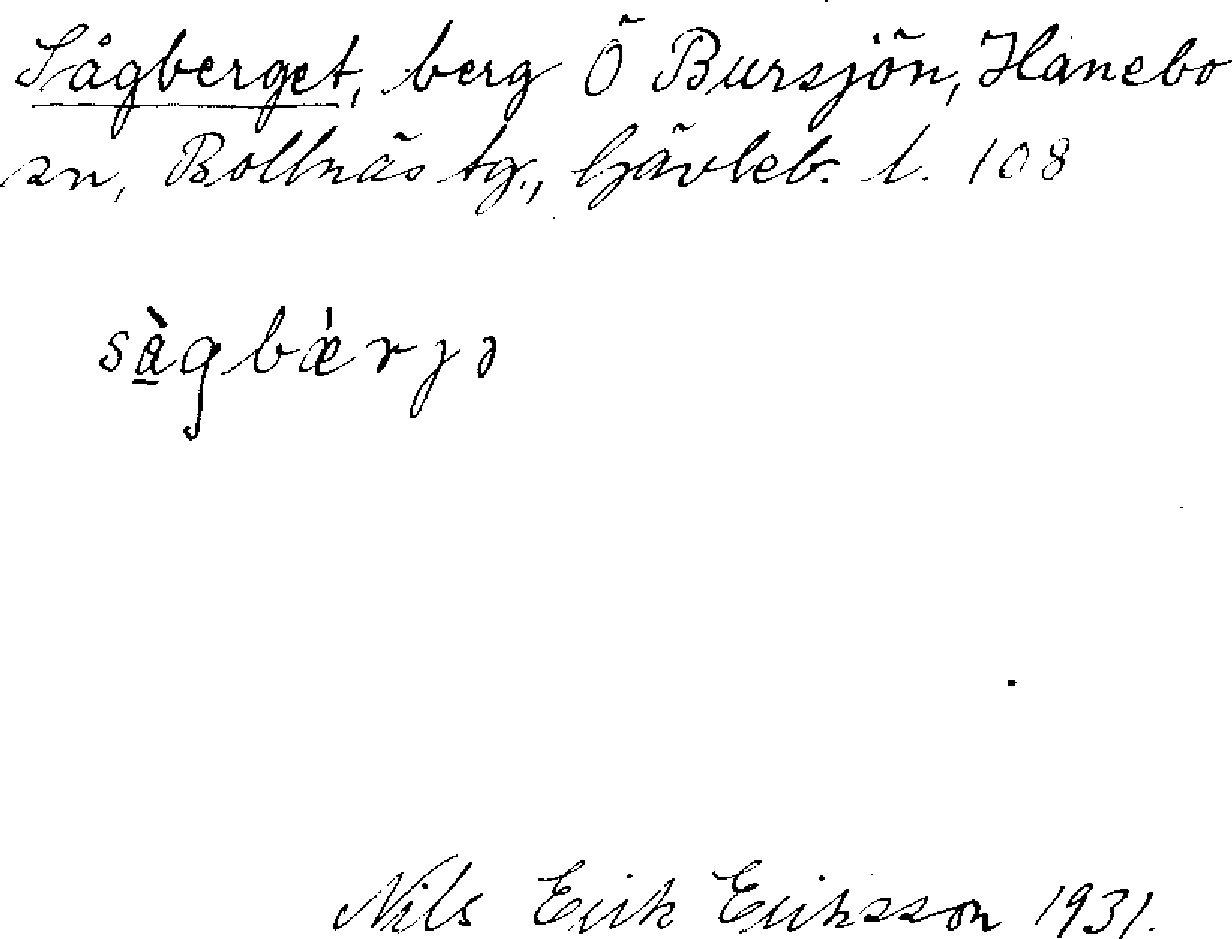 Sågberget, berg Ö Bursjön, Hanebo
sn, Bollnäs tg., Gävleb. l. 108
sàgbǽrjə
Nils Erik Eriksson 1931.